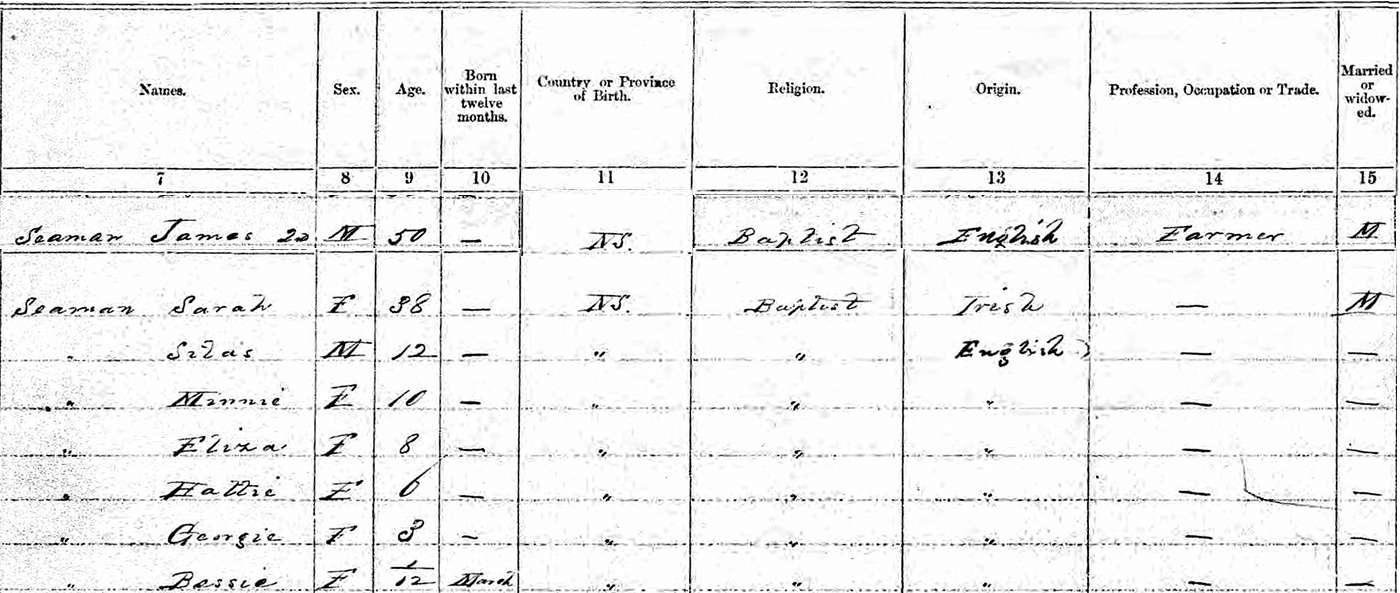 Names. Sex. Age. Born within last twelve months. Country or Province of Birth. Religion. Origin. Profession, Occupation or Trade. Married or widow-ed.
7 8 9 10 11 12 13 14 15
Seaman James 2d M 50 — NS. Baptist English Farmer M
Seaman Sarah F 38 — NS. Baptist Irish — M
" Silas M 12 — " " English — —
" Minnie F 10 — " " " — —
" Eliza F 8 — " " " — —
" Hattie F 6 — " " " — —
" Georgie F 3 — " " " — —
" Bessie F 1/12 March " " " — —